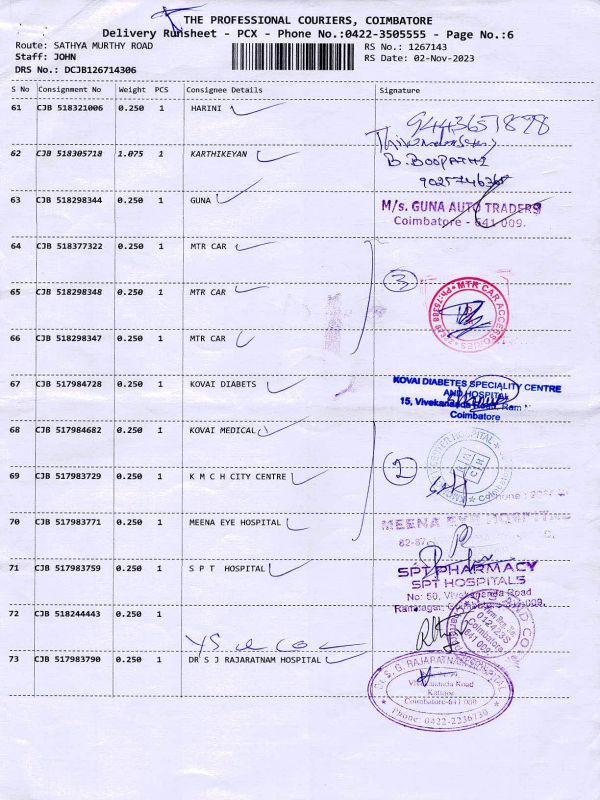 THE PROFESSIONAL COURIERS, COIMBATORE
Delivery Runsheet - PCX - Phone No.:0422-3505555 - Page No.:6
Route: SATHYA MURTHY ROAD
RS No.: 1267143
Staff: JOHN
RS Date: 02-Nov-2023
DRS No.: DCJB126714306
S No Consignment No Weight PCS Consignee Details Signature
61 CJB 518321006 0.250 1 HARINI
9443651898
62 CJB 518305718 1.075 1 KARTHIKEYAN
B. BOOPATHI
63 CJB 518298344 0.250 1 GUNA
M/s. GUNA AUTO TRADERS
Coimbatore - 641 009.
64 CJB 518377322 0.250 1 MTR CAR
65 CJB 518298348 0.250 1 MTR CAR
3
MTR CAR ACCESSORIES
66 CJB 518298347 0.250 1 MTR CAR
67 CJB 517984728 0.250 1 KOVAI DIABETS
KOVAI DIABETES SPECIALITY CENTRE
AND HOSPITAL
15, Vivekananda Road, Ram
Coimbatore
68 CJB 517984682 0.250 1 KOVAI MEDICAL
69 CJB 517983729 0.250 1 K M C H CITY CENTRE
2
Phone :
70 CJB 517983771 0.250 1 MEENA EYE HOSPITAL
MEENA EYE HOSPITAL
71 CJB 517983759 0.250 1 S P T HOSPITAL
SPT PHARMACY
SPT HOSPITALS
No: 50, Vivekananda Road
Ramnagar, Coimbatore
72 CJB 518244443 0.250 1
012423S
Coimbatore
641 009
73 CJB 517983790 0.250 1 DR S J RAJARATNAM HOSPITAL
Dr. S. G. RAJARATNAM HOSPITAL
Vivekananda Road
Kattoor,
Coimbatore-641 009.
Phone: 0422-2236730